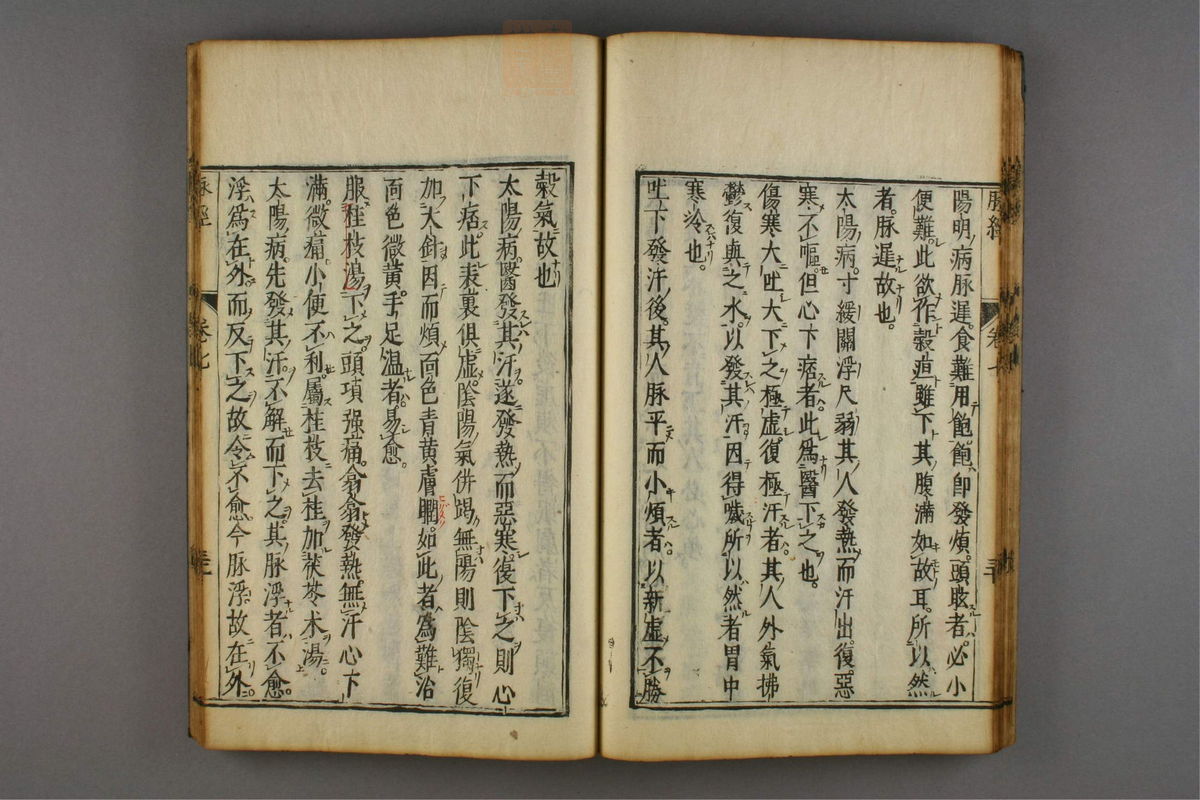 脉經 卷七 三十
陽明病脉遲。食難用飽。飽即發煩。頭眩者。必小
便難。此欲作穀疸。雖下其腹滿如故耳。所以然
者。脉遲故也。
太陽病。寸緩關浮尺弱其人發熱而汗出。復惡
寒。不嘔。但心下痞者。此爲醫下之也。
傷寒大吐大下之極虛。復極汗者。其人外氣拂
鬱。復與之水。以發其汗。因得噦。所以然者胃中
寒冷也。
吐下發汗後。其人脉平而小煩者。以新虛不勝
穀氣故也
太陽病。醫發其汗。遂發熱而惡寒。復下之則心
下痞。此表裏俱虛。陰陽氣併竭無陽則陰獨復
加火針因而煩面色青黃膚瞤。如此者爲難治
面色微黃。手足溫者。易愈。
服桂枝湯下之。頭項強痛。翕翕發熱。無汗心下
滿。微痛小便不利。屬桂枝去桂加茯苓术湯。
太陽病。先發其汗。不解而下之。其脉浮者不愈。
浮爲在外。而反下之故令不愈今脉浮。故在外。
脉經 卷七